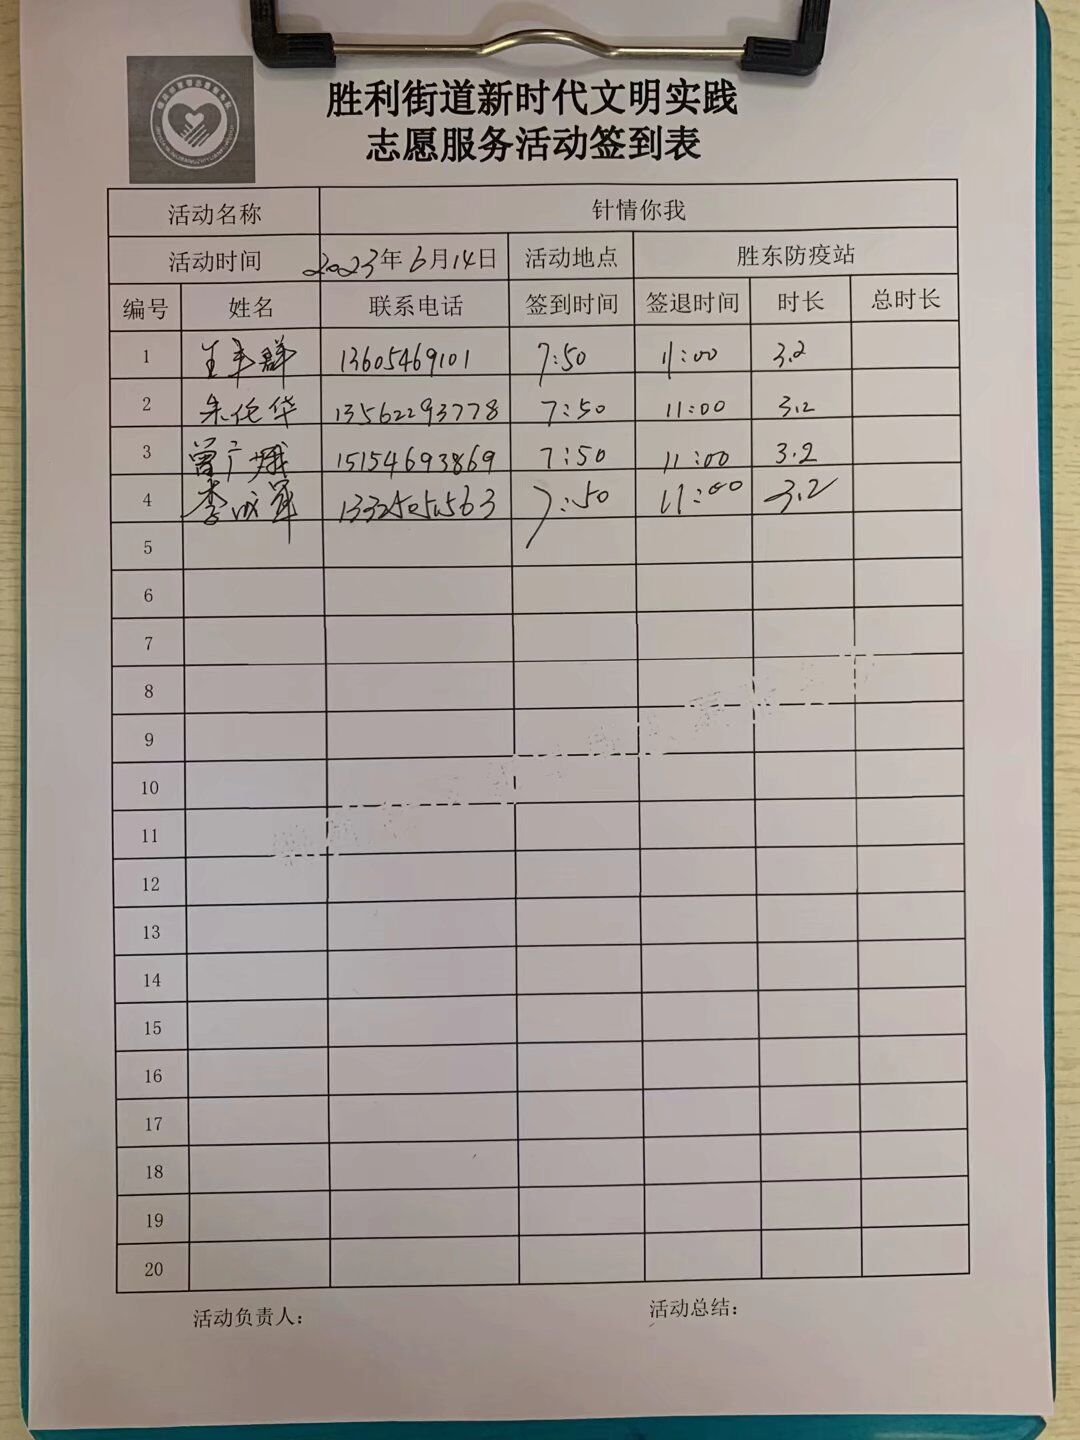 胜利街道新时代文明实践
志愿服务活动签到表
活动名称 针情你我
活动时间 2023年6月14日 活动地点 胜东防疫站
编号 姓名 联系电话 签到时间 签退时间 时长 总时长
1 13605469101 7:50 11:00 3.2
2 朱伦华 13562293778 7:50 11:00 3.2
3 曾广娥 15154693869 7:50 11:00 3.2
4 李成军 7:50 11:00 3.2
5
6
7
8
9
10
11
12
13
14
15
16
17
18
19
20
活动负责人: 活动总结: